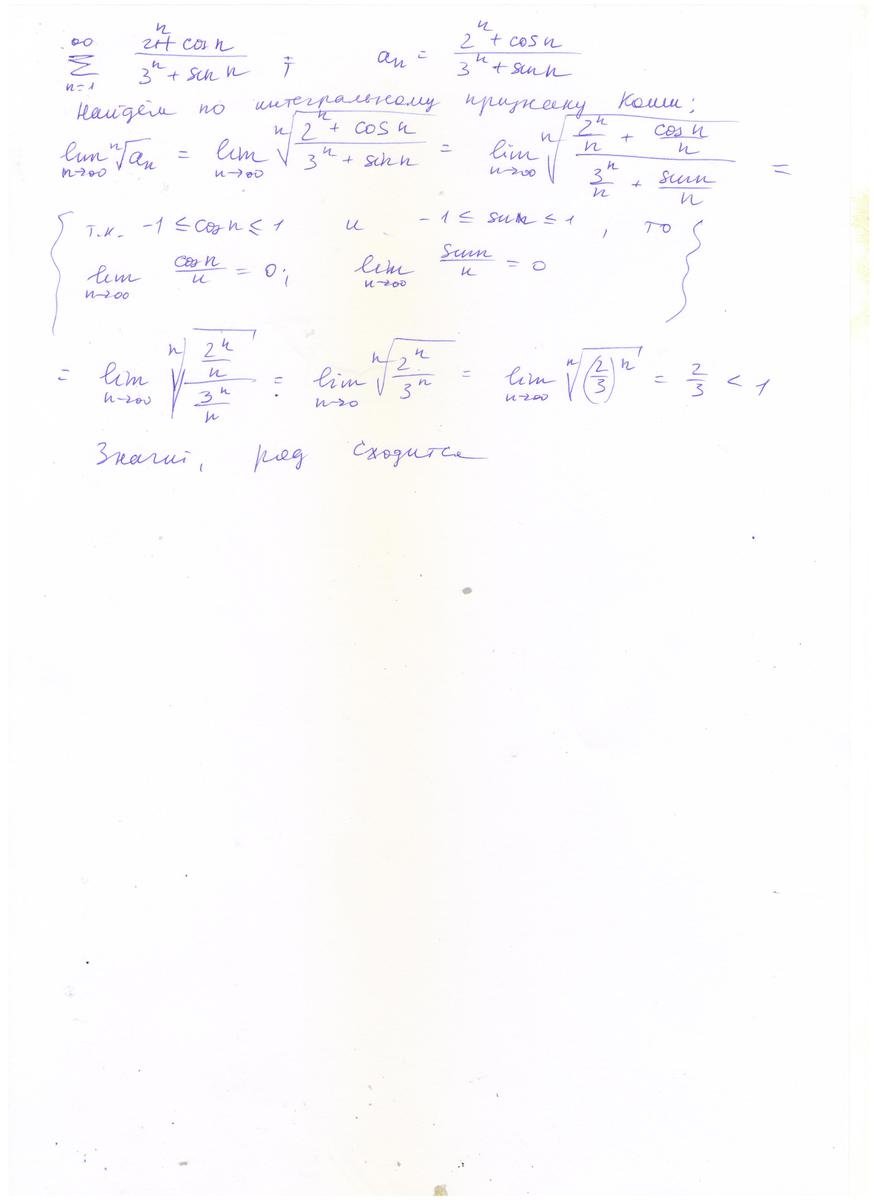 ∞ Σ n=1 (2^n + cos n)/(3^n + sin n) ; a_n = (2^n + cos n)/(3^n + sin n)
Найдём по интегральному признаку Коши;
lim n→∞ ⁿ√a_n = lim n→∞ ⁿ√((2^n + cos n)/(3^n + sin n)) = lim n→∞ ⁿ√((2^n/n + cos n/n)/(3^n/n + sin n/n)) =
{ т.к. -1 ≤ cos n ≤ 1 и -1 ≤ sin n ≤ 1, то
lim n→∞ cos n/n = 0; lim n→∞ sin n/n = 0 }
= lim n→∞ ⁿ√((2^n/n)/(3^n/n)) = lim n→∞ ⁿ√(2^n/3^n) = lim n→∞ ⁿ√((2/3)^n) = 2/3 < 1
Значит, ряд сходится